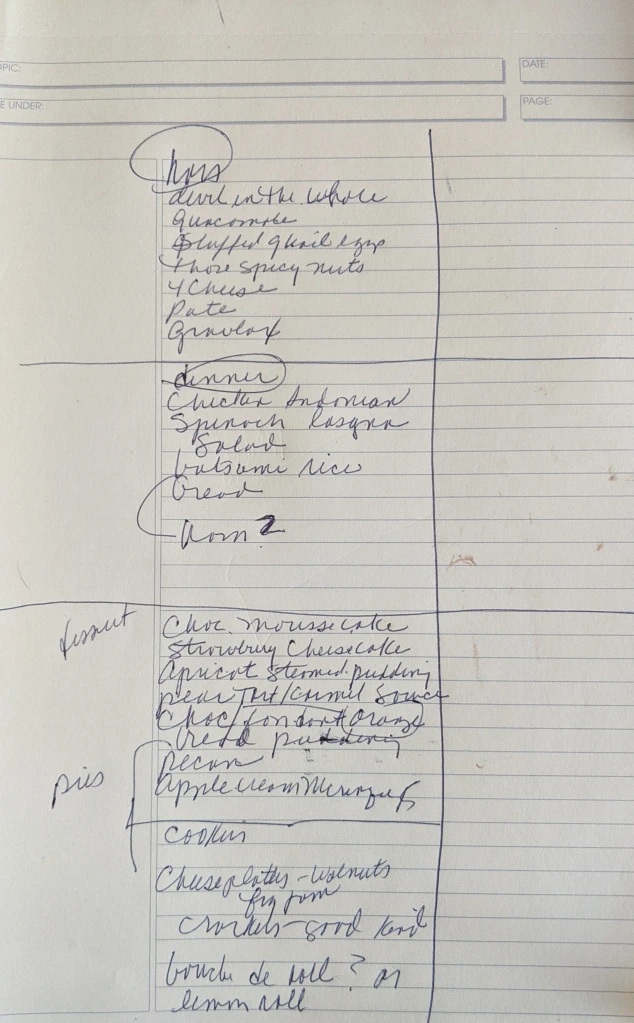 OPIC:
DATE:
E UNDER:
PAGE:
hors
devil in the whole
guacomole
stuffed quail eggs
those spicy nuts
4 cheese
Pate
Gravlax
dinner
Chicken Andonian
Spinach lasagna
Salad
batsami rice
bread
ham?
dessert
Choc. Mousse cake
Strawbery Cheesecake
Apricot Steamed pudding
pear Tart/Carmel Sauce
Choc/fondant Orange
bread pudding
pies
pecan
Apple cream
Cookies
Cheese plates - walnuts
fig jam
Crackers - good kind
bouche de roll? or
lemon roll